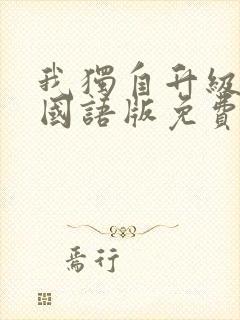 我獨自升級
國語版免費
焉行